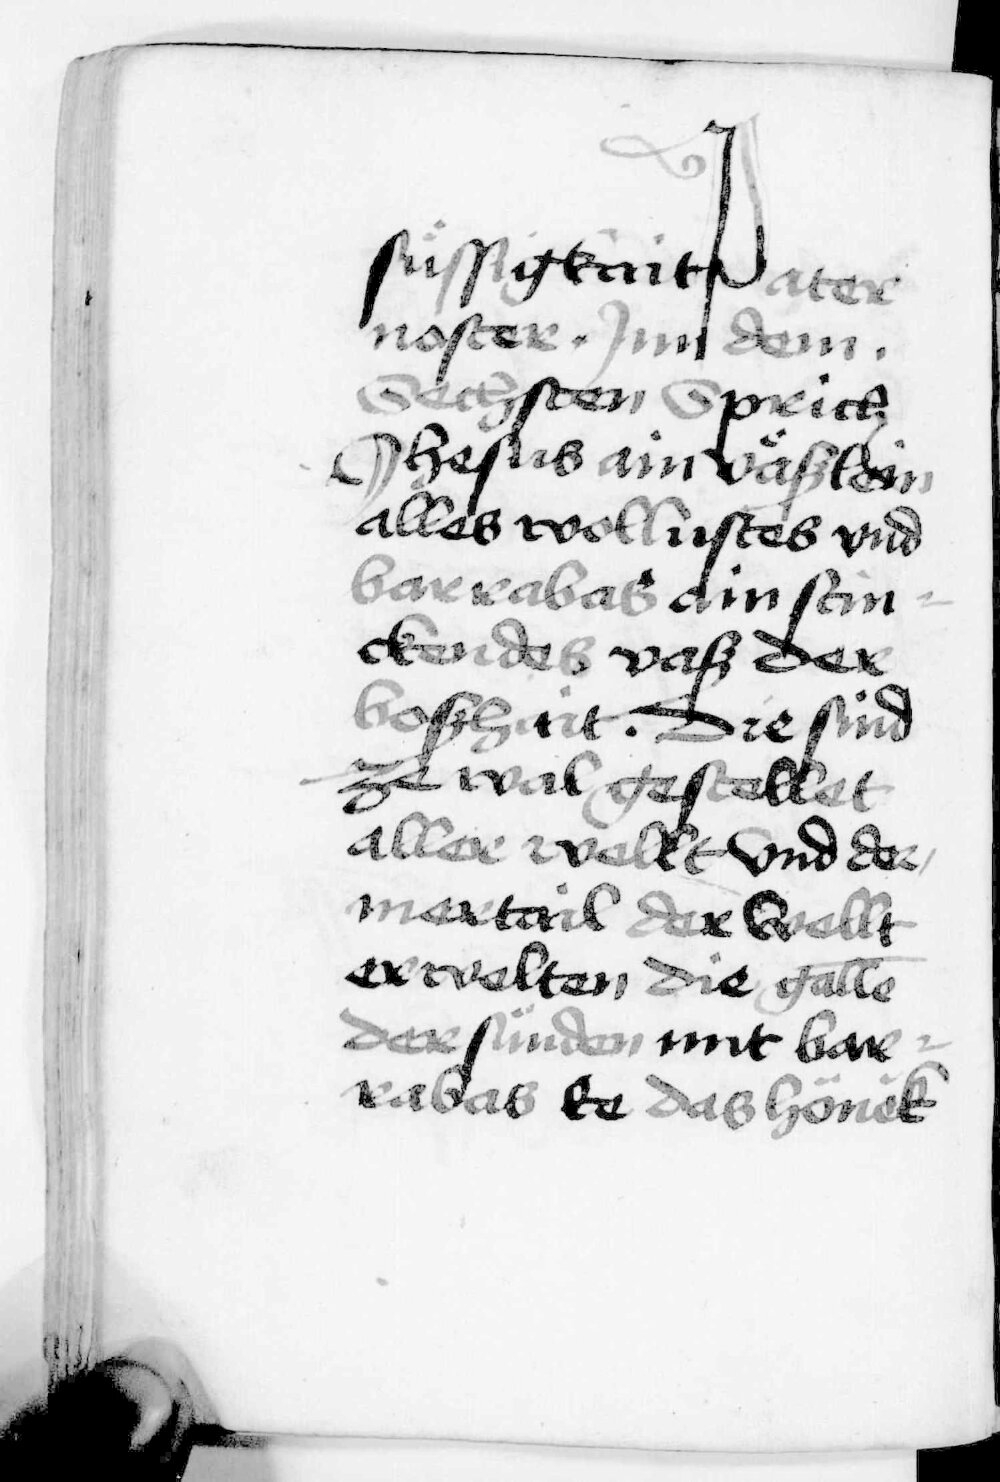 süssigkait Pater
noster. Inn dem.
Sechsten Sprich
Jhesus ain väßlein
alles wollustes vnd
barrabas ain stin=
ckendes vaß der
boßhait. Die sind
ze wal gestellet
aller wellt vnd der
mertail der wellt
erwelten die galle
der sünden mit bar=
rabas das hönek